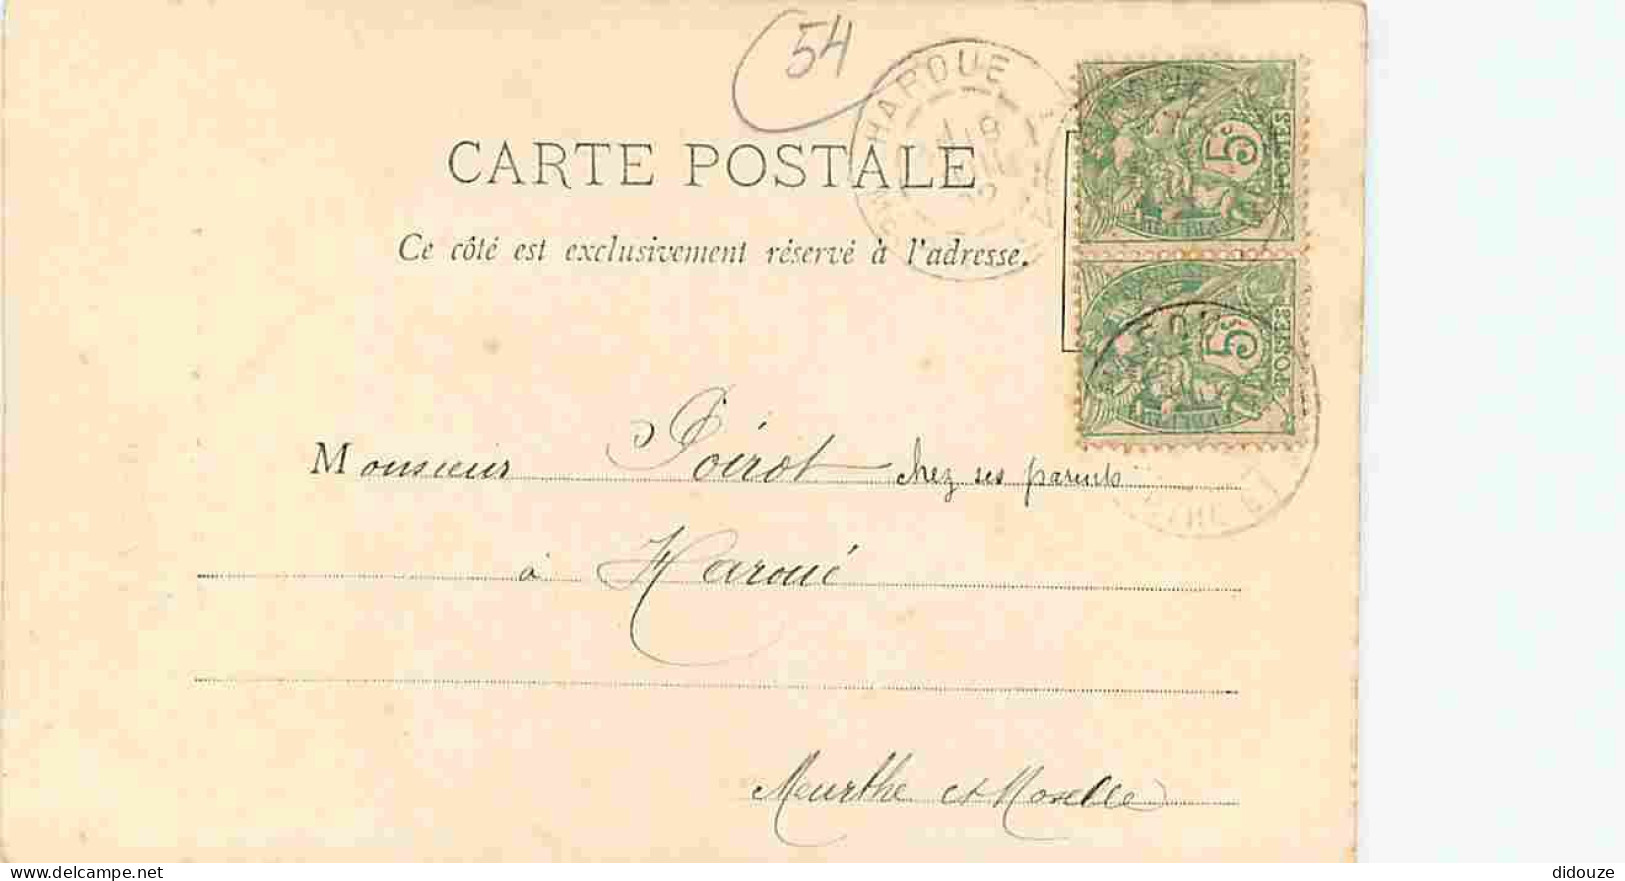 54
HAROUE
CARTE POSTALE
Ce côté est exclusivement réservé à l'adresse.
5c
POSTES
5c
POSTES
Monsieur Poirot chez ses parents
à Haroué
Meurthe et Moselle
delcampe.net
didouze